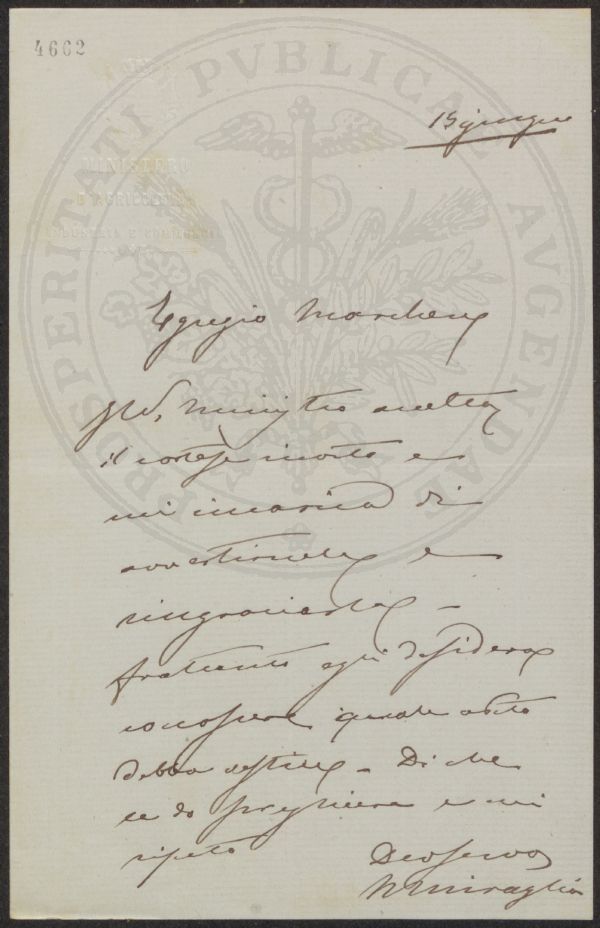 4662
PROSPERITATI PVBLICAE AVGENDAE
MINISTERO
D'AGRICOLTURA
INDUSTRIA E COMMERCIO
15 giugno
Egregio Marchese
Il S. Ministro accetta
il cortese invito e
mi incarica di
avvertirnela e
ringraziarla -
frattanto egli desidera
conoscere quale abito
debba vestire - Di che
le do preghiera e mi
ripeto
Dev servo
N Miraglia